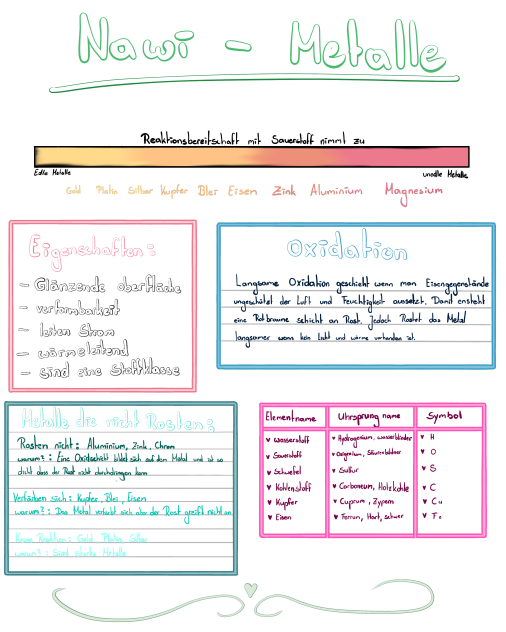 Nawi - Metalle
Reaktionsbereitschaft mit Sauerstoff nimmt zu
Edle Metalle
unedle Metalle
Gold Platin Silber Kupfer Blei Eisen Zink Aluminium Magnesium
Eigenschaften:
- Glänzende oberfläche
- verformbarkeit
- leiten Strom
- wärmeleitend
- sind eine Stoffklasse
Oxidation
Langsame Oxidation geschieht wenn man Eisengegenstände
ungeschützt der Luft und Feuchtigkeit aussetzt. Damit entsteht
eine Rotbraune schicht an Rost. Jedoch Rostet das Metall
langsamer wenn kein Licht und wärme vorhanden ist.
Metalle die nicht Rosten:
Rosten nicht: Aluminium, Zink, Chrom
warum?: Eine Oxidschicht bildet sich auf dem Metall und ist so
dicht dass der Rost nicht durchdringen kann
Verfärben sich: Kupfer, Blei, Eisen
warum?: Das Metall verfärbt sich aber der Rost greift nicht an
Keine Reaktion: Gold Platin Silber
warum?: Sind starke Metalle
Elementname Uhrsprung name Symbol
♥ Wasserstoff ♥ Hydrogenium, wasserbildner ♥ H
♥ Sauerstoff ♥ Oxygenium, Säurenbildner ♥ O
♥ Schwefel ♥ Sulfur ♥ S
♥ Kohlenstoff ♥ Carboneum, Holzkohle ♥ C
♥ Kupfer ♥ Cuprum, Zypern ♥ Cu
♥ Eisen ♥ Ferrum, Hart, schwer ♥ Fe